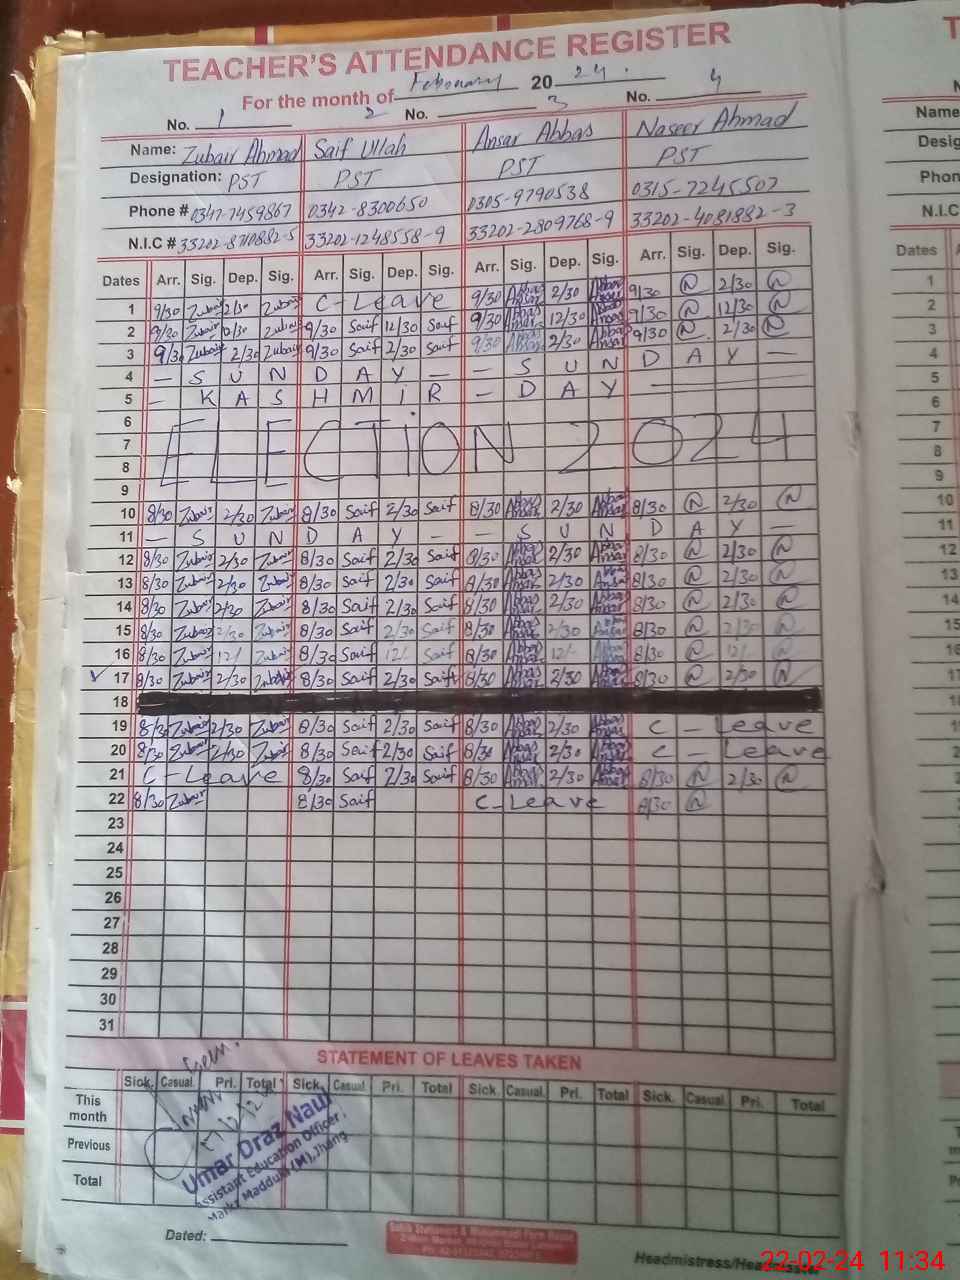 TEACHER'S ATTENDANCE REGISTER
For the month of February 20 24.
No. 1 2 No. 3 No. 4
Name: Zubair Ahmad Saif Ullah Ansar Abbas Naseer Ahmad
Designation: PST PST PST PST
Phone # 0347-7459867 0342-8300650 0305-9790538 0315-7245507
N.I.C # 33202-8710882-5 33202-1248558-9 33202-2809768-9 33202-4081882-3
Dates Arr. Sig. Dep. Sig. Arr. Sig. Dep. Sig. Arr. Sig. Dep. Sig. Arr. Sig. Dep. Sig.
1 9/30 Zubair 2/30 Zubair C-Leave 9/30 Abbas Ansar 2/30 Abbas Ansar 9/30 N 2/30 N
2 9/30 Zubair 12/30 Zubair 9/30 Saif 12/30 Saif 9/30 Abbas Ansar 12/30 Abbas Ansar 9/30 N 12/30 N
3 9/30 Zubair 2/30 Zubair 9/30 Saif 2/30 Saif 9/30 Abbas Ansar 2/30 Abbas Ansar 9/30 N 2/30 N
4 — S U N D A Y — — S U N D A Y —
5 — K A S H M i R — D A Y —
6
7 ELECTiON 2024
8
9
10 8/30 Zubair 2/30 Zubair 8/30 Saif 2/30 Saif 8/30 Abbas Ansar 2/30 Abbas Ansar 8/30 N 2/30 N
11 — S U N D A Y — — S U N D A Y —
12 8/30 Zubair 2/30 Zubair 8/30 Saif 2/30 Saif 8/30 Abbas Ansar 2/30 Abbas Ansar 8/30 N 2/30 N
13 8/30 Zubair 2/30 Zubair 8/30 Saif 2/30 Saif 8/30 Abbas Ansar 2/30 Abbas Ansar 8/30 N 2/30 N
14 8/30 Zubair 2/30 Zubair 8/30 Saif 2/30 Saif 8/30 Abbas Ansar 2/30 Abbas Ansar 8/30 N 2/30 N
15 8/30 Zubair 2/30 Zubair 8/30 Saif 2/30 Saif 8/30 Abbas Ansar 2/30 Abbas Ansar 8/30 N 2/30 N
16 8/30 Zubair 12/- Zubair 8/30 Saif 12/- Saif 8/30 Abbas Ansar 12/- Abbas Ansar 8/30 N 12/- N
17 8/30 Zubair 2/30 Zubair 8/30 Saif 2/30 Saif 8/30 Abbas Ansar 2/30 Abbas Ansar 8/30 N 2/30 N
18
19 8/30 Zubair 2/30 Zubair 8/30 Saif 2/30 Saif 8/30 Abbas Ansar 2/30 Abbas Ansar C - Leave
20 8/30 Zubair 2/30 Zubair 8/30 Saif 2/30 Saif 8/30 Abbas Ansar 2/30 Abbas Ansar C - Leave
21 C-Leave 8/30 Saif 2/30 Saif 8/30 Abbas Ansar 2/30 Abbas Ansar 8/30 N 2/30 N
22 8/30 Zubair 8/30 Saif C-Leave 8/30 N
23
24
25
26
27
28
29
30
31
STATEMENT OF LEAVES TAKEN
Sick. Casual. Pri. Total Sick. Casual Pri. Total Sick. Casual. Pri. Total Sick. Casual. Pri. Total
This month
Previous
Total
Umar Draz Naul
Assistant Education Officer,
Markz Madduki (M), Jhang
Dated:
Headmistress/Headmaster
22-02-24 11:34